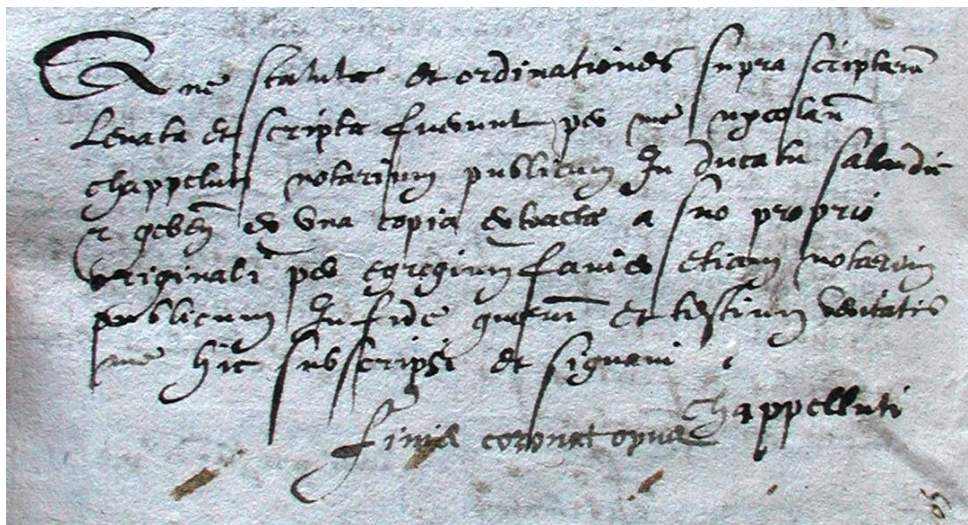 Que statuta et ordinationes supra scripta
Levata et scripta fuerunt per me nycolaū
chappeluti notarium publicum In ducatu sabaudie
et gebeñ ex una copia extracta a suo proprio
originali per egregium etiam notarium
publicum In fide quorū et testium veritatis
me hic subscripsi et signavi
Chappelluti
finis coronat opus